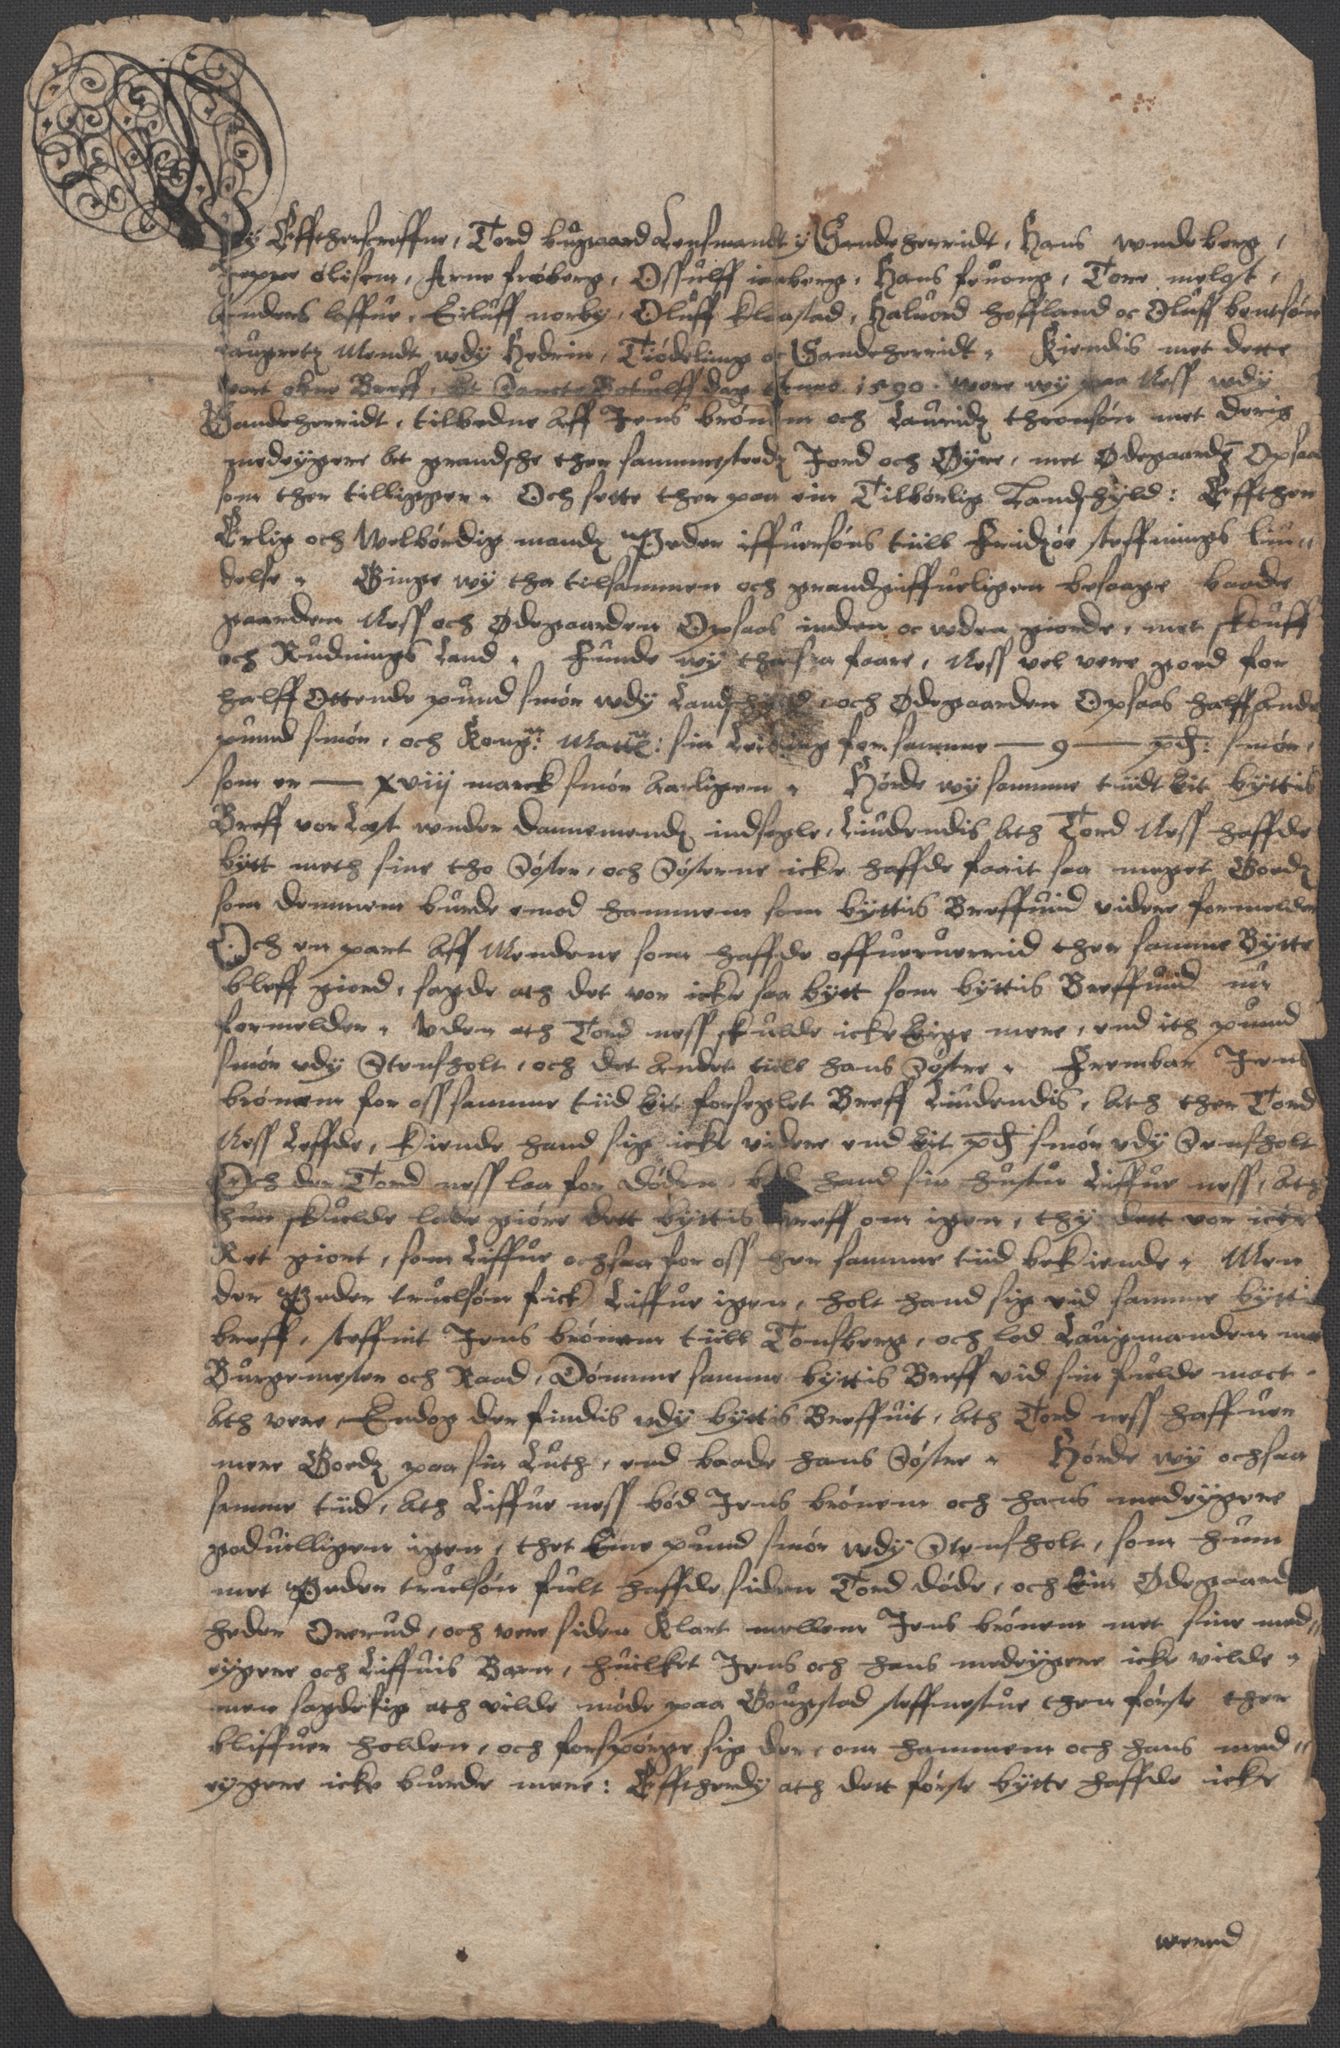 Wy Effterscreffne, Tord bugaard Lensmandt y Sandeherridt, Hans wndeberg,
Jeppe ølisem, Arne froberg, Ossulff iaaberg, Hans feuong, Tore meløst,
Anders loffue, Eiluff norby, Oluff klaastad, Haluord hoffland oc Oluff bentsøn
Laugretz Mendt wdy Hedrim, Tiødeling oc Sandeherridt. Kiendis met dette
vort obne Breff, At Sancte Botulffs dag Anno 1590. vore wy paa Ness wdy
Sandeherridt, tilbedne Aff Jens brønem och Lauridz thronsøn met deris
medeygere At grandske ther sammestedz Jord och Øyre, met Ødegaardz Opsaa
som ther tilligger. Och sette ther paa ein Tilbørlig Landskyld: Effther
Erlig och Welbørdig mandz Peder iffuersøns till Fridzøe steffnings liu-
delse. Ginge wy tha tilsammen och grandgiffueligen besaage baade
gaarden Ness och Ødegaarden Opsaas inden oc wden giorde, met skouff
och Rudnings Land. Funde wy tha saa faare, Ness vel vere goed for
halff Ottende pund smør wdy Landskyld, och Ødegaarden Opsaas halff Andet
pund smør, och Kong: Matt: sin Leiding forsamme — 9 — pd: smør,
som er — xviij marck smør Aarligen. Hørde wy samme tiidt Eit byttis
Breff vor Læst wnder dannemendz indsegle, Liudendis Ath Tord Ness haffde
bytt meth sine tho Søster, och Søsterne icke haffde faait saa meget Goedz
som dennem burde emod hannem som byttis Breffuid videre formelder
Och en part Aff Mendene som haffde offueruerrid ther samme Bytte
bleff giord, sagde ath det vor icke saa bytt som byttis Breffuid nu
formelder. Vden ath Tord ness skulde icke Eige mere, end ith pund
smør vdy Stensholt, och det Andet till hans Søstre. Frembar Jens
brønem for oss samme tiid Eit forseglet Breff Liudendis, Ath ther Tord
Ness Leffde, kiende hand sig icke videre end Eit pd smør vdy Stensholt
Och der Tord ness laa for døden bad hand sin hustru Liffue ness, Ath
hun skulde lade giøre dett byttis Breff om igen, thy dett vor icke
Ret giort, som Liffue ochsaa for oss her samme tiid bekiende. Men
der Peder truelsøn fick Liffue igen, holt hand sig vid samme byttis
breff, steffnit Jens brønem till Tonsberg, och lod Laugmanden met
Burgemester och Raad, Dømme samme byttis Breff vid sin fulde mact
Ath vere, Endog der findis vdy byttis Breffuit, Ath Tord ness haffuer
mere Goedz paa sin Luth, end baade hans Søstre. Hørde wy ochsaa
samme tiid, Ath Liffue ness bød Jens brønem och hans medeygere
goduilligen igen, thet Ene pund smør wdy Stensholt, som hun
met Peder truelsøn fult haffde siden Tord døde, och Ein Ødegaard
heder Ourud, och vere siden klart mellem Jens brønem met sine med-
eygere och Liffuis Barn, huilket Jens och hans medeygere icke vilde,
men sagde sig ath vilde møde paa Gougstad steffnestue then første ther
bliffuer holden, och forspørge sig der, om hannem och hans med-
eygere icke burde mere: Effterdy ath dett første bytte haffde icke
werrid